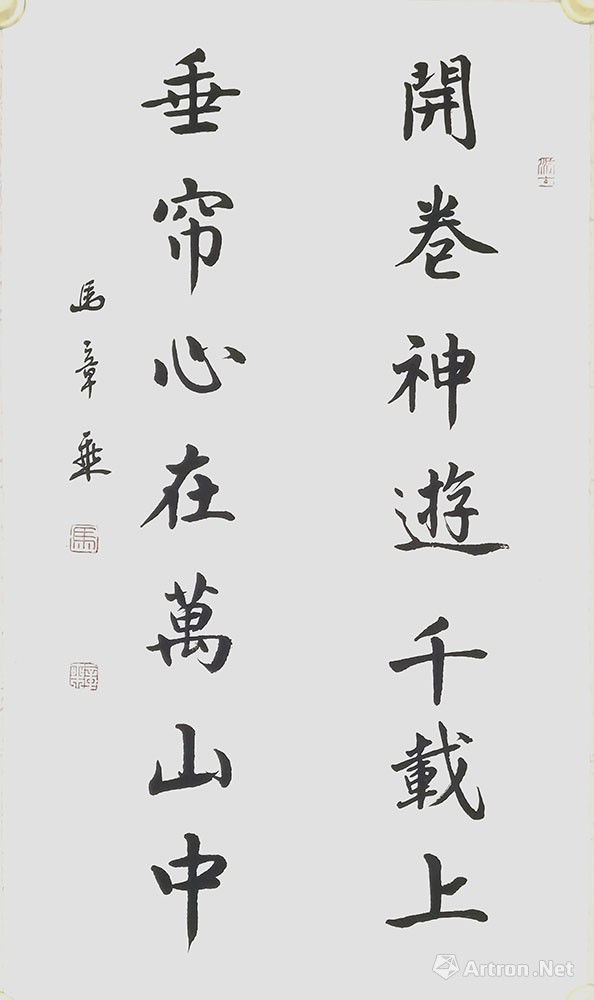 開卷神遊千載上
垂帘心在萬山中
馬章乘
Artron.Net